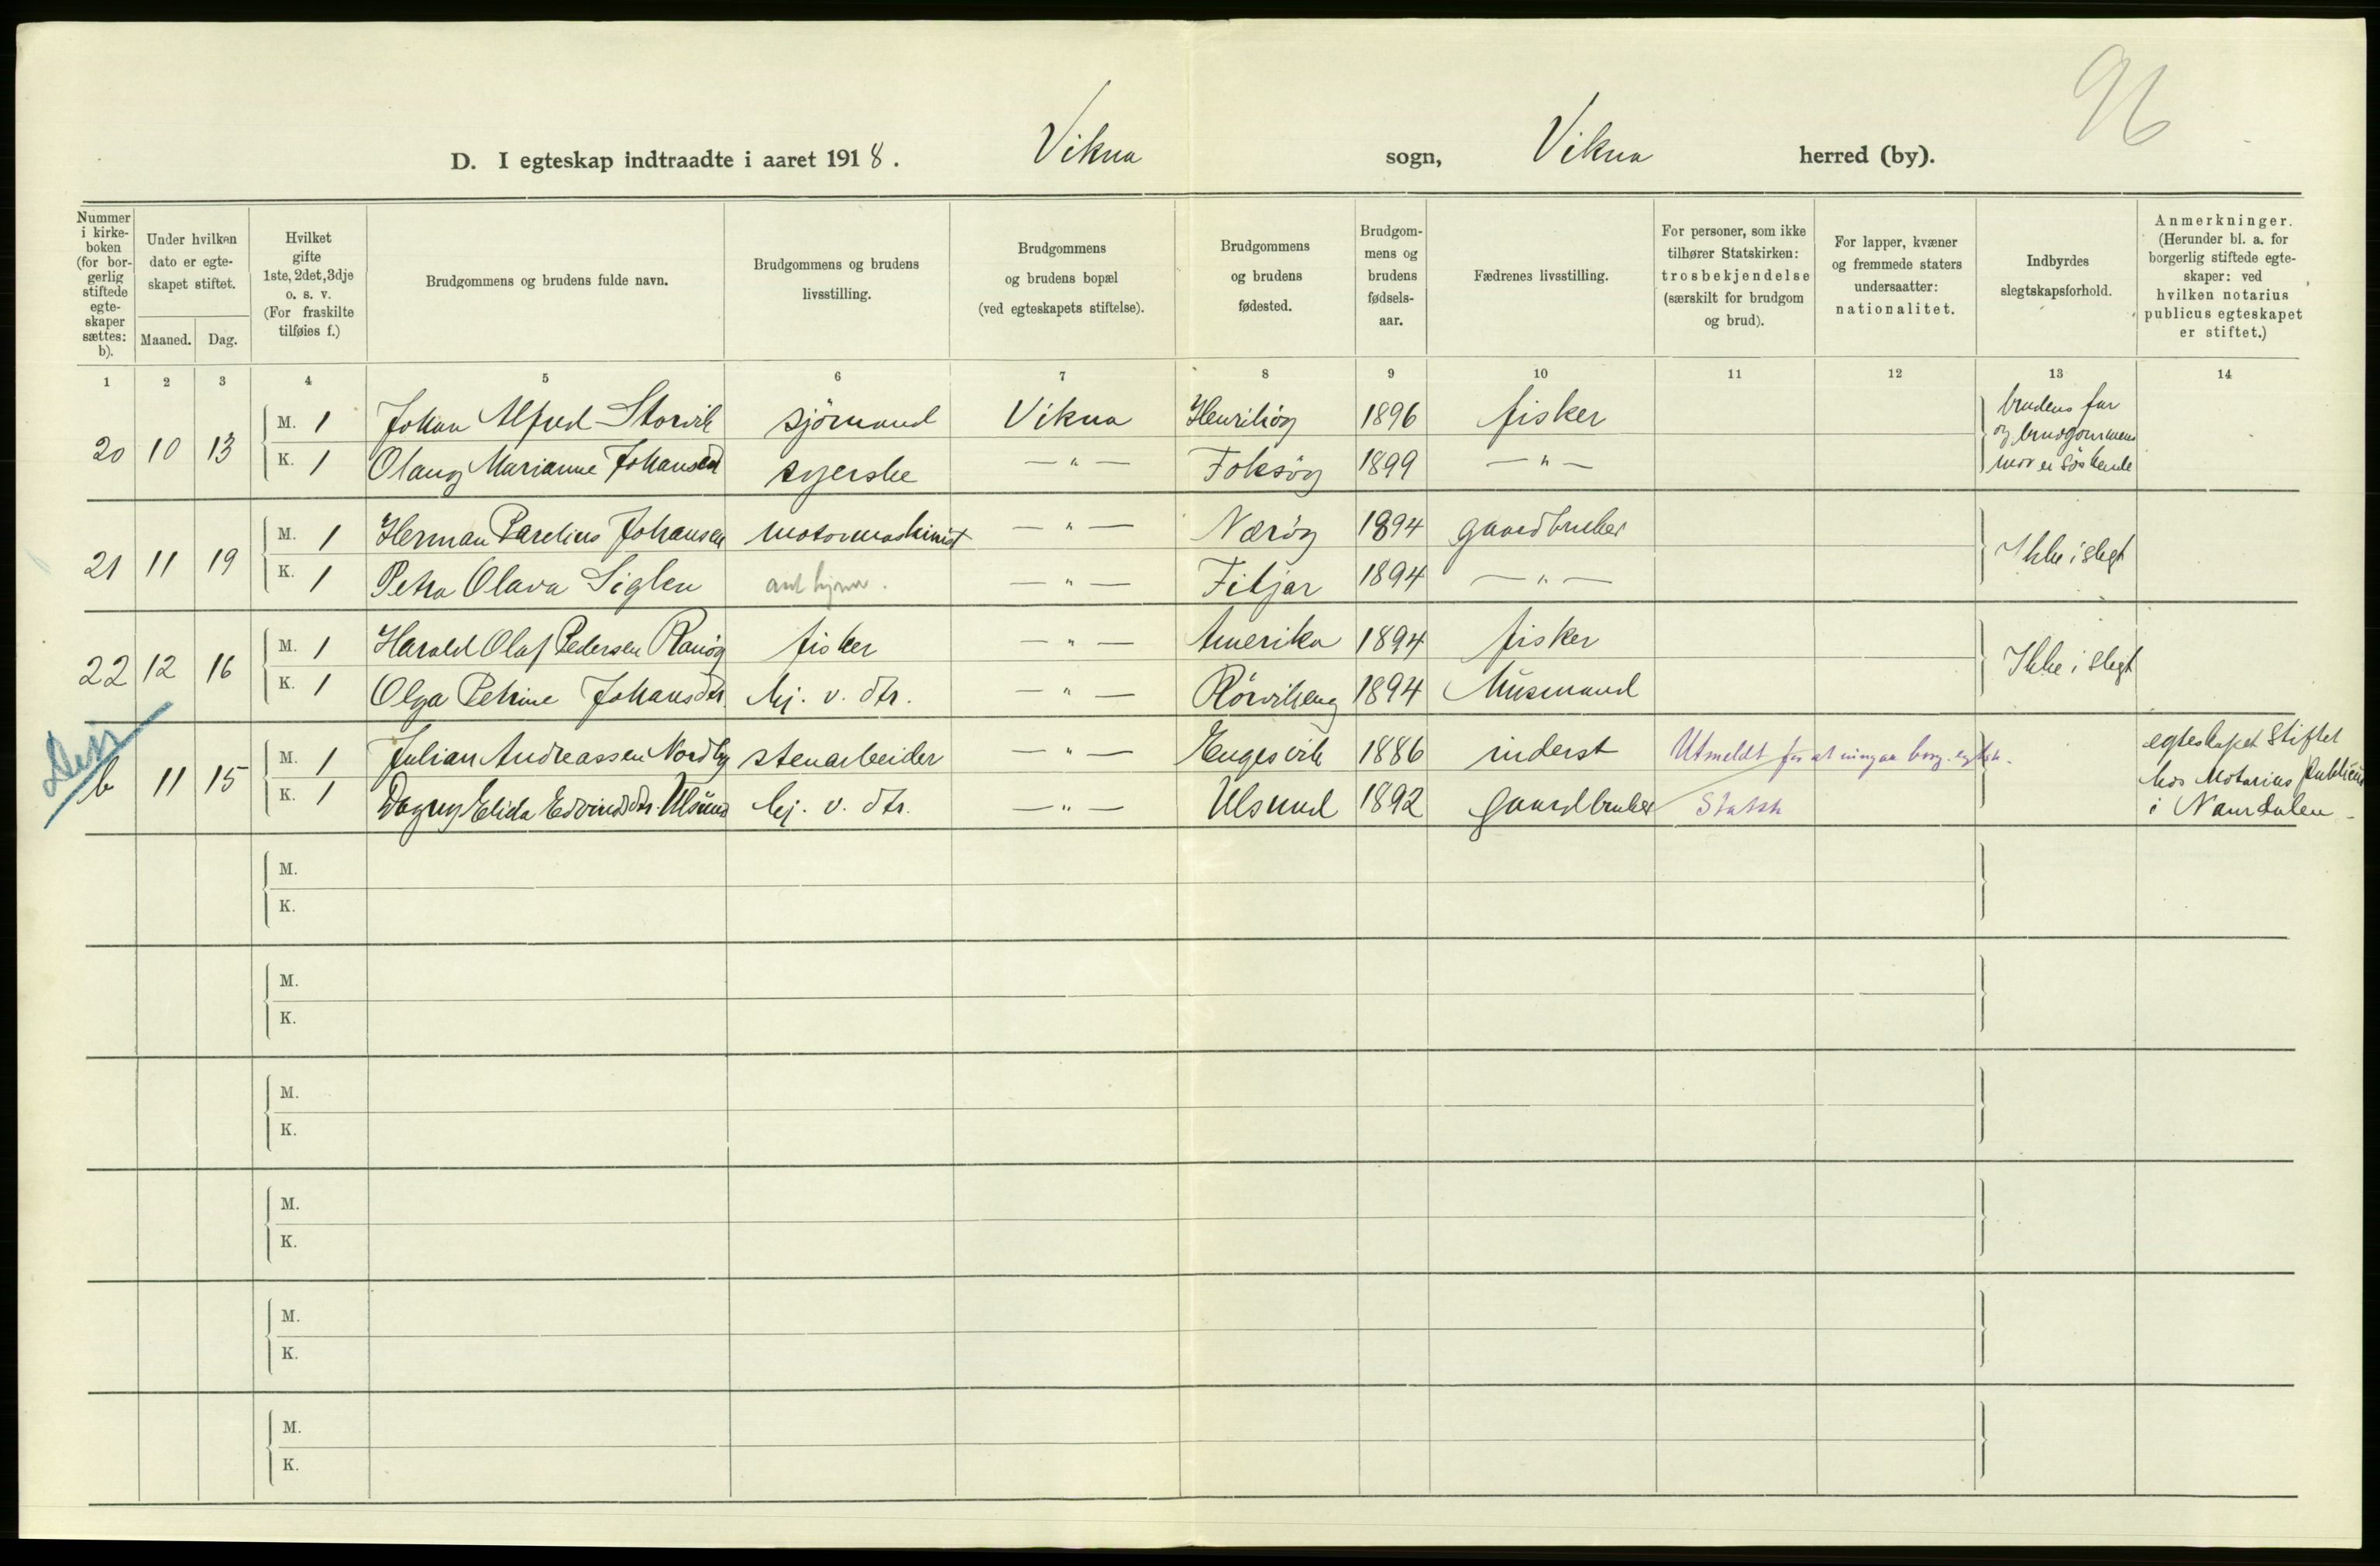 96
D. I egteskap indtraadte i aaret 1918. Vikna sogn, Vikna herred (by).
Nummer i kirke-boken (for bor-gerlig stiftede egte-skaper sættes: b).
Under hvilken dato er egte-skapet stiftet.
Maaned. Dag.
Hvilket gifte 1ste, 2det, 3dje o. s. v. (For fraskilte tilføies f.)
Brudgommens og brudens fulde navn.
Brudgommens og brudens livsstilling.
Brudgommens og brudens bopæl (ved egteskapets stiftelse).
Brudgommens og brudens fødested.
Brudgom-mens og brudens fødsels-aar.
Fædrenes livsstilling.
For personer, som ikke tilhører Statskirken: trosbekjendelse (særskilt for brudgom og brud).
For lapper, kvæner og fremmede staters undersaatter: nationalitet.
Indbyrdes slegtskapsforhold.
Anmerkninger. (Herunder bl. a. for borgerlig stiftede egte-skaper: ved hvilken notarius publicus egteskapet er stiftet.)
1 2 3 4 5 6 7 8 9 10 11 12 13 14
20 10 13 M. 1 Johan Alfred Storvik sjömand Vikna Henriköy 1896 fisker brudens far og brudgommens mor er söskende
K. 1 Olaug Marianne Johansen syerske — " — Foksöy 1899 — " —
21 11 19 M. 1 Herman Parelius Johansen motormaskinist — " — Næröy 1894 gaardbruker Ikke i slegt
K. 1 Petra Olava Siglen — " — Fitjar 1894 — " —
22 12 16 M. 1 Harald Olaf Pedersen Ramöy fisker — " — Amerika 1894 fisker Ikke i slegt
K. 1 Olga Petrine Johansdtr. hj. v. dtr. — " — Rörvikeng 1894 Husmand
b 11 15 M. 1 Julian Andreassen Nordby stenarbeider — " — Engesvik 1886 inderst Utmeldt for at inngaa borg. egtesk. egteskapet stiftet hos Notarius Publicus i Namdalen
K. 1 Dagny Elida Edvindsdtr. Ulsund hj. v. dtr. — " — Ulsund 1892 gaardbruker Statsk
M.
K.
M.
K.
M.
K.
M.
K.
M.
K.
M.
K.